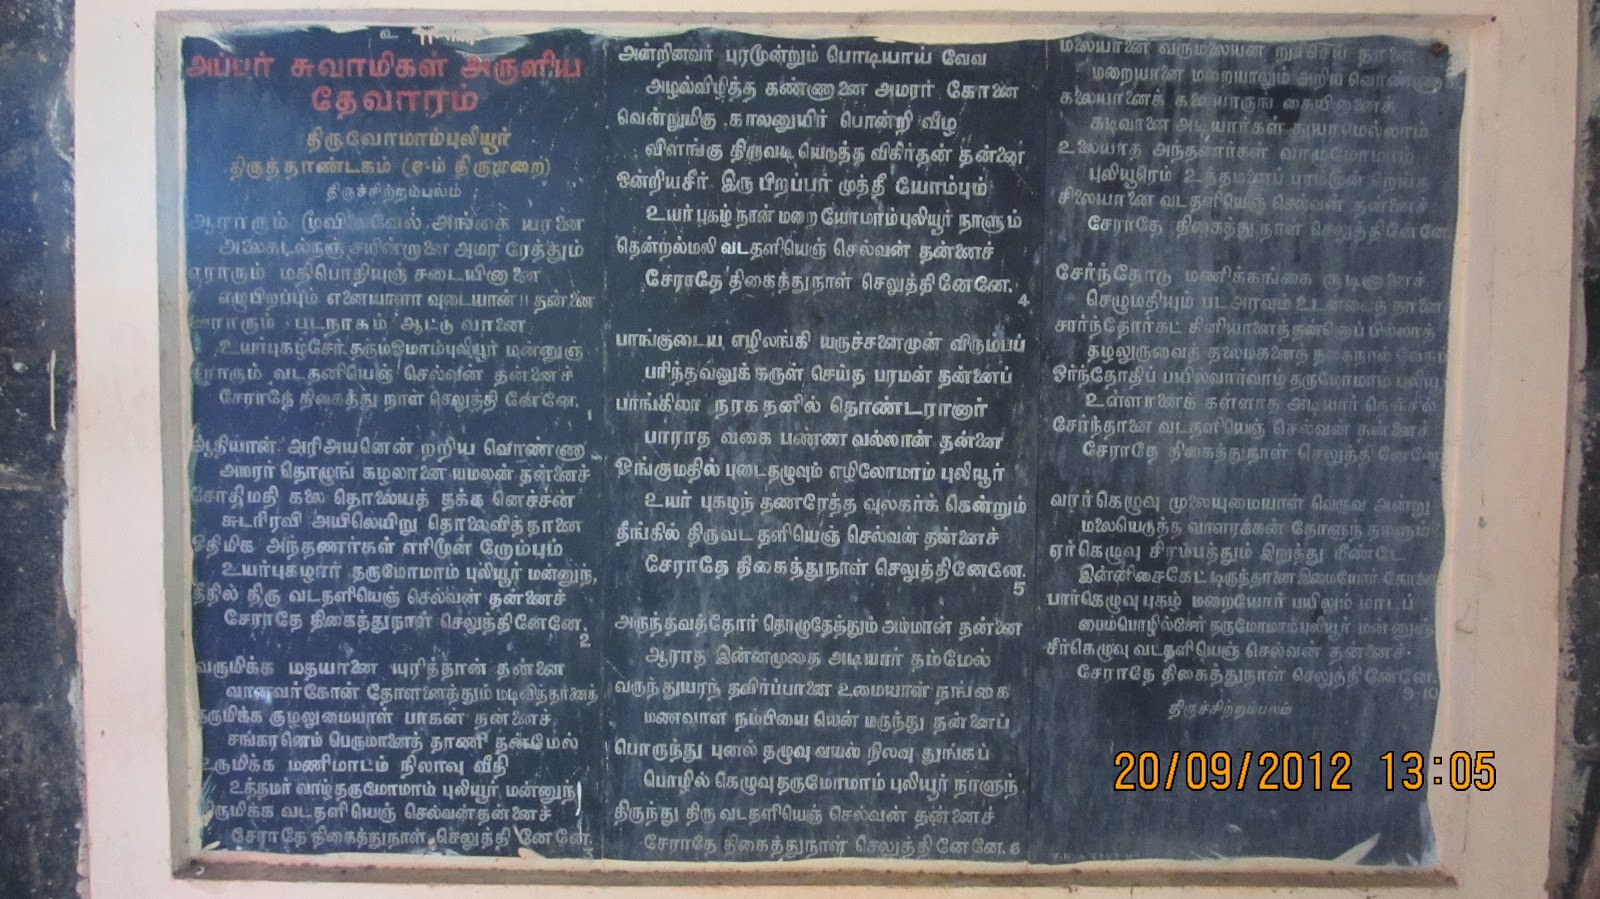 உ
அப்பர் சுவாமிகள் அருளிய
தேவாரம்
திருவோமாம்புலியூர்
திருத்தாண்டகம் (௬-ம் திருமுறை)
திருச்சிற்றம்பலம்
ஆராரும் மூவிலைவேல் அங்கை யானை
அலைகடல்நஞ் சயின்றானை அமர ரேத்தும்
ஏராரும் மதிபொதியுஞ் சடையினானை
எழுபிறப்பும் எனையாளா வுடையான் தன்னை
ஊராரும் படநாகம் ஆட்டு வானை
உயர்புகழ்சேர் தருமஓமாம்புலியூர் மன்னுஞ்
சீராரும் வடதளியெஞ் செல்வன் தன்னைச்
சேராதே திகைத்து நாள் செலுத்தி னேனே. 1
ஆதியான் அரிஅயனென் றறிய வொண்ணா
அமரர் தொழுங் கழலானை யமலன் தன்னைச்
சோதிமதி கலை தொலையத் தக்க னெச்சன்
சுடரிரவி அயிலெயிறு தொலைவித்தானை
ஓதிமிக அந்தணர்கள் எரிமூன் றோம்பும்
உயர்புகழார் தருமோமாம் புலியூர் மன்னுந்,
தீதில் திரு வடதளியெஞ் செல்வன் தன்னைச்
சேராதே திகைத்துநாள் செலுத்தினேனே. 2
வருமிக்க மதயானை யுரித்தான் தன்னை
வானவர்கோன் தோளனைத்தும் மடிவித்தானைத்
தருமிக்க குழலுமையாள் பாகன் தன்னைச்
சங்கரனெம் பெருமானைத் தரணி தன்மேல்
உருமிக்க மணிமாடம் நிலாவு வீதி
உத்தமர் வாழ்தருமோமாம் புலியூர் மன்னுந்
திருமிக்க வடதளியெஞ் செல்வன்தன்னைச்
சேராதே திகைத்துநாள் செலுத்தி னேனே. 3
அன்றினவர் புரமூன்றும் பொடியாய் வேவ
அழல்விழித்த கண்ணானை அமரர் கோனை
வென்றுமிகு காலனுயிர் பொன்றி வீழ
விளங்கு திருவடி யெடுத்த விகிர்தன் தன்னை
ஒன்றியசீர் இரு பிறப்பர் முத்தீ யோம்பும்
உயர் புகழ் நான் மறை யோமாம்புலியூர் நாளும்
தென்றல்மலி வடதளியெஞ் செல்வன் தன்னைச்
சேராதே திகைத்துநாள் செலுத்தினேனே. 4
பாங்குடைய எழிலங்கி யருச்சனைமுன் விரும்பப்
பரிந்தவனுக் கருள் செய்த பரமன் தன்னைப்
பாங்கிலா நரகதனில் தொண்டரானார்
பாராத வகை பண்ண வல்லான் தன்னை
ஓங்குமதில் புடைதழுவும் எழிலோமாம் புலியூர்
உயர் புகழந் தணரேத்த வுலகர்க் கென்றும்
தீங்கில் திருவட தளியெஞ் செல்வன் தன்னைச்
சேராதே திகைத்துநாள் செலுத்தினேனே. 5
அருந்தவத்தோர் தொழுதேத்தும் அம்மான் தன்னை
ஆராத இன்னமுதை அடியார் தம்மேல்
வருந்துயரந் தவிர்ப்பானை உமையாள் நங்கை
மணவாள நம்பியை யென் மருந்து தன்னைப்
பொருந்து புனல் தழுவு வயல் நிலவு துங்கப்
பொழில் கெழுவு தருமோமாம் புலியூர் நாளுந்
திருந்து திரு வடதளியெஞ் செல்வன் தன்னைச்
சேராதே திகைத்துநாள் செலுத்தினேனே. 6
மலையானை வருமலையன் றுரிசெய் தானை
மறையானை மறையாலும் அறிய வொண்ணாக்
கலையானைக் கலையாருங் கையினானைக்
கடிவானை அடியார்கள் துயரமெல்லாம்
உலையாத அந்தணர்கள் வாழுமோமாம்
புலியூரெம் உத்தமனைப் புரமூன் றெய்த
சிலையானை வடதளியெஞ் செல்வன் தன்னைச்
சேராதே திகைத்து நாள் செலுத்தினேனே.
சேர்ந்தோடு மணிக்கங்கை சூடினானைச்
செழுமதியும் படஅரவும் உடன்வைத் தானை
சார்ந்தோர்கட் கினியானைத்தன்னொப் பில்லாத்
தழலுருவைத் தலைமகனைத் தகைநால் வேதம்
ஓர்ந்தோதிப் பயில்வார்வாழ் தருமோமாம் புலியூர்
உள்ளானைக் கள்ளாத அடியார் நெஞ்சில்
சேர்ந்தானை வடதளியெஞ் செல்வன் தன்னைச்
சேராதே திகைத்துநாள் செலுத்தி னேனே
வார்கெழுவு முலையுமையாள் வெருவ அன்று
மலையெடுத்த வாளரக்கன் தோளுந் தாளும்
ஏர்கெழுவு சிரம்பத்தும் இறுத்து மீண்டே
இன்னிசைகேட் டிருந்தானை இமையோர் கோனை
பார்கெழுவு புகழ் மறையோர் பயிலும் மாடப்
பைம்பொழில்சேர் தருமோமாம்புலியூர் மன்னுஞ்
சீர்கெழுவு வடதளியெஞ் செல்வன் தன்னைச்
சேராதே திகைத்துநாள் செலுத்தி னேனே.
9-10
திருச்சிற்றம்பலம்
20/09/2012 13:05